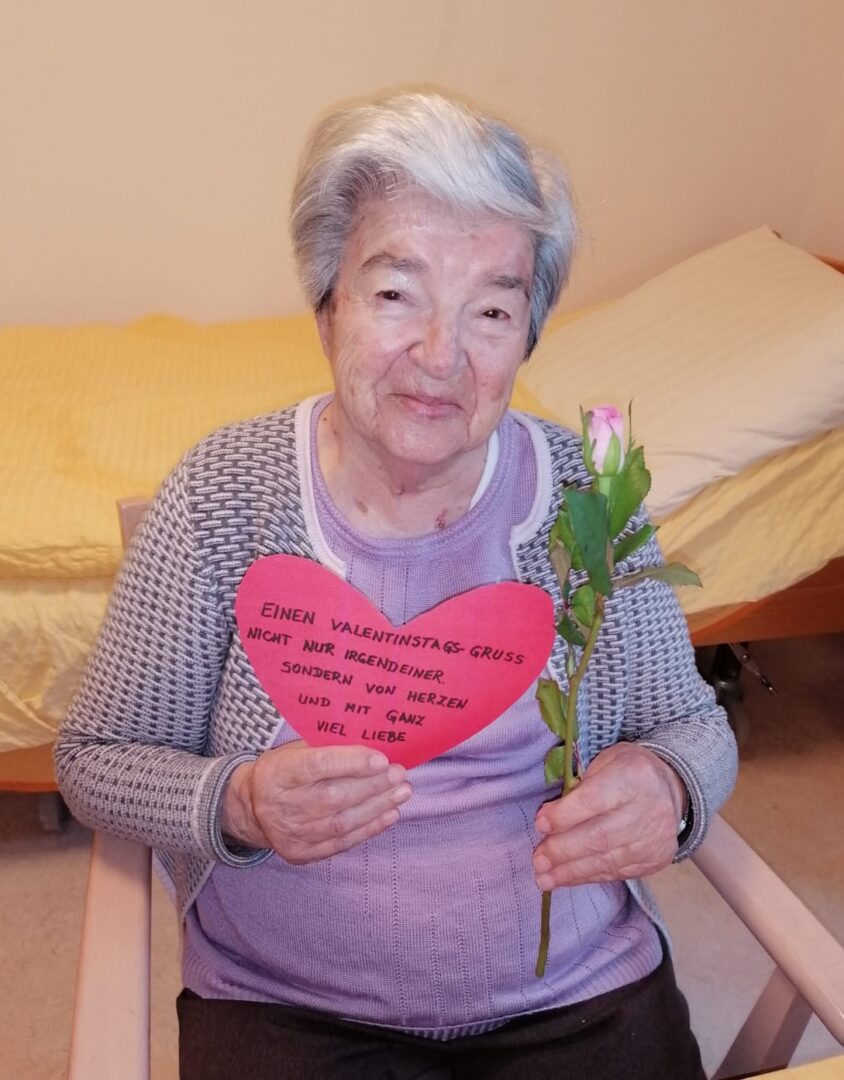 EINEN VALENTINSTAGS-GRUSS
NICHT NUR IRGENDEINER.
SONDERN VON HERZEN
UND MIT GANZ
VIEL LIEBE